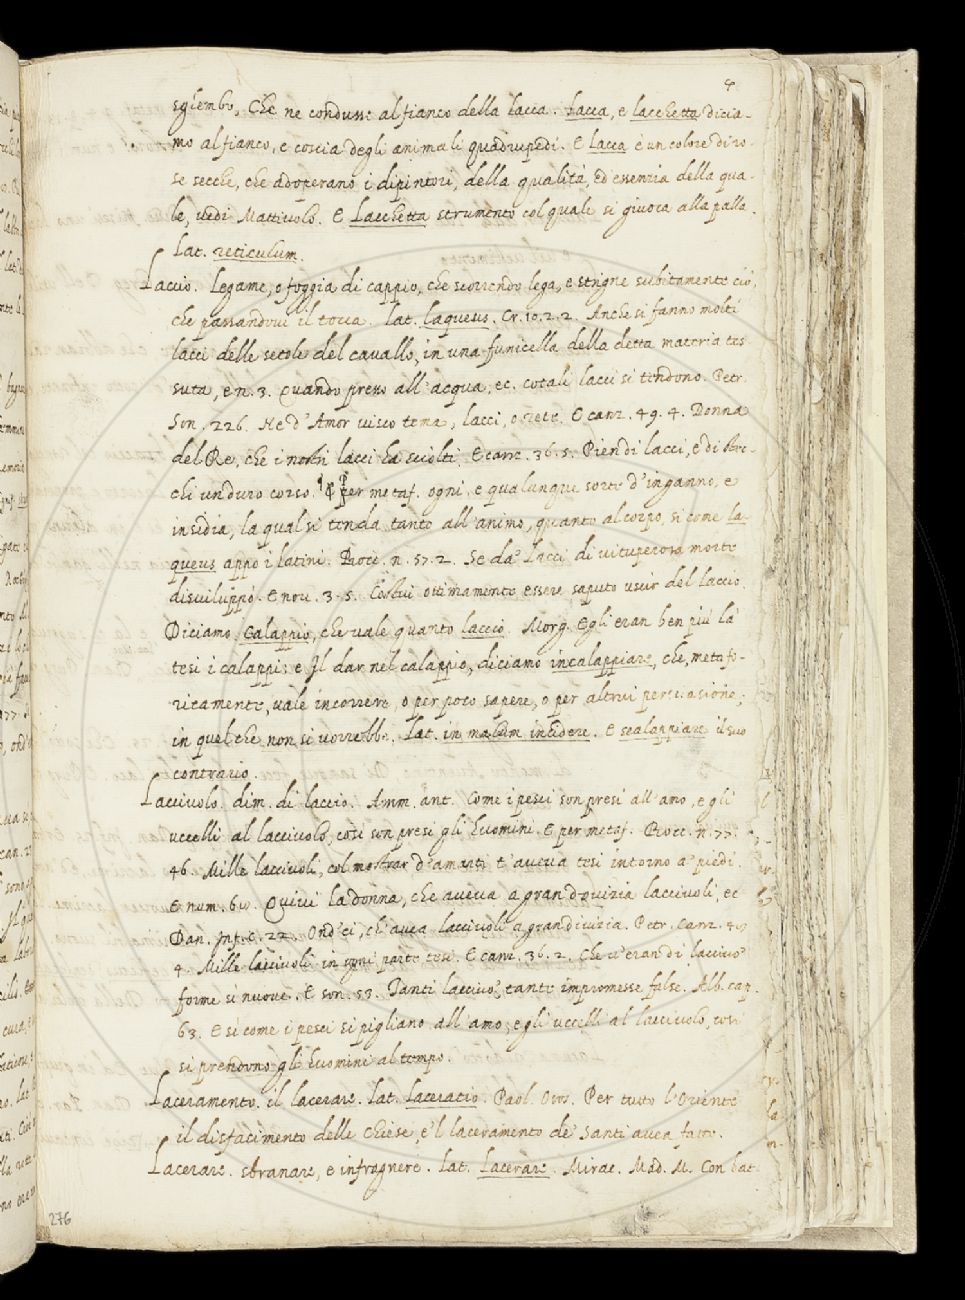 4
sghembo, Che ne condusse al fianco della lacca. Lacca, e lacchetta dicia-
mo al fianco, e coscia degli animali quadrupedi. E lacca è un colore di ro-
se secche, che adoperano i dipintori, della qualità, ed essenzia della qua-
le, vedi Mattiuolo. E Lacchetta strumento col quale si giuoca alla palla.
Lat. reticulum.
Laccio. Legame, o foggia di cappio, che scorrendo lega, e strigne subitamente ciò,
che passandoui il tocca. Lat. laqueus. Cr. 10. 2. 2. Anche si fanno molti
lacci delle setole del cavallo, in una funicella della detta materia tes
suta, e n. 3. Quando presso all'acqua, ec. cotali lacci si tendono. Petr.
Son. 226. Ne d'Amor uisco tema, lacci, o rete. E canz. 49. 4. Donna
del Re, che i nostri lacci ha sciolti. E canz. 36. 5. Pien di lacci, e di stec-
chi un duro corso. per metaf. ogni, e qualunque sorte d'inganno, e
insidia, la qual si tenda tanto all'animo, quanto al corpo, si come la-
queus appò i latini. Bocc. n. 57. 2. Se da' lacci di uituperosa morte
disuiluppò. E nou. 3. 5. Costui ottimamente essere saputo uscir del laccio.
Diciamo Calappio, che vale quanto laccio. Morg. Egli eran ben più là
tesi i calappi: e Il dar nel calappio, diciamo incalappiare, che, metafo-
ricamente, vale incorrere, o per poco sapere, o per altrui persuasione,
in quel che non si uorrebbe. Lat. in malum incidere. E scalappiare il suo
contrario.
Lacciuolo. dim. di laccio. Amm. ant. Come i pesci son presi all'amo, e gli
uccelli al lacciuolo, così son presi gli huomini. E per metaf. Bocc. n. 77.
46. Mille lacciuoli, col mostrar d'amarti t'aueua tesi intorno a' piedi.
E num. 60. Quiui la donna, che aueua a gran douizia lacciuoli, ec
Dan. Inf. c. 22. Ond'ei, ch'auea lacciuoli a gran diuizia. Petr. Canz. 49
4. Mille lacciuoli in ogni parte tesi. E canz. 36. 2. Che u'eran di lacciuo'
forme si nuoue. E son. 53. Tanti lacciuo', tante impromesse false. Alb. cap.
63. E si come i pesci si pigliano all'amo, e gli uccelli al lacciuolo, così
si prendono gli huomini al tempo.
Laceramento. il lacerare. Lat. Laceratio. Paol. Oros. Per tutto l'Oriente
il disfacimento delle chiese, e'l laceramento de' Santi auea fatto.
Lacerare. sbranare, e infragnere. Lat. Lacerare. Mirac. Mad. M. Con bat-
276